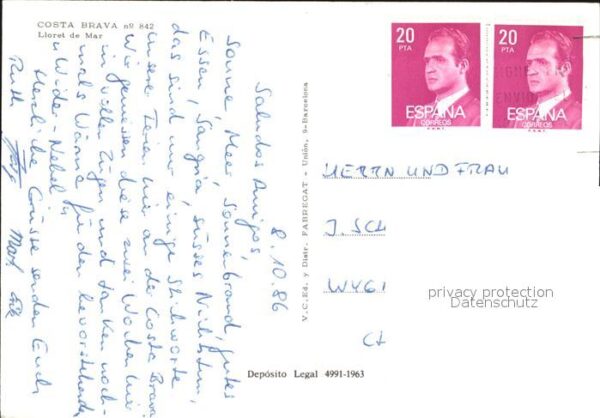 COSTA BRAVA nº 842
Lloret de Mar
8.10.86
Saludos Amigos,
Sonne, Meer, Sonnenbrand, gutes
Essen, Sangria, süsses Nichtstun,
das sind nur einige Stichworte
unsere Ferien hier an der Costa Brava.
Wir geniessen diese zwei Wochen hier
in vollen Zügen und tanken noch-
mals Wärme für den bevorstehenden
Winter-Nebel.
Herzliche Grüsse senden Euch
Ruth
V.C.Ed. y Distr. FABREGAT - Unión, 9-Barcelona
20
PTA
ESPAÑA
CORREOS
20
PTA
ESPAÑA
CORREOS
HERRN UND FRAU
J. SCH
WYGI
CH
privacy protection
Datenschutz
Depósito Legal 4991-1963